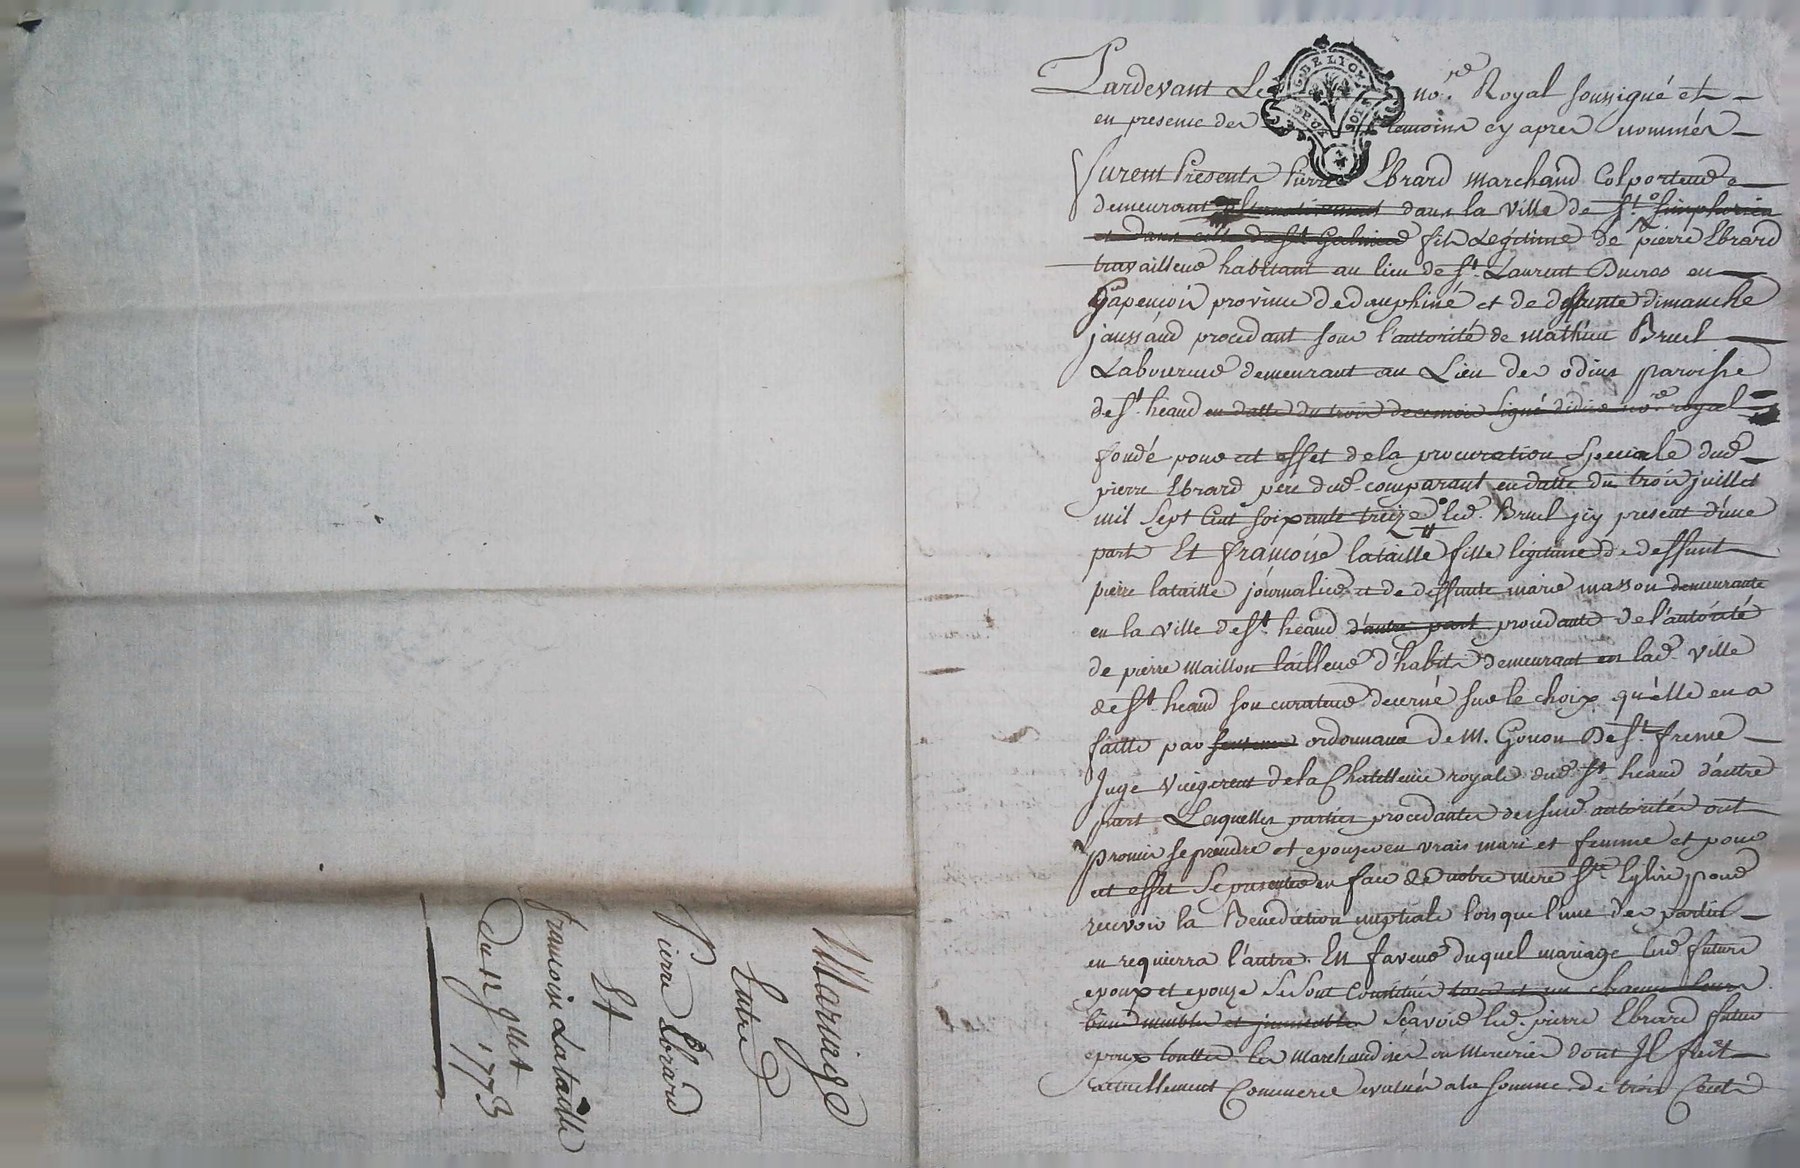 Mariage
Entre
Pierre Ebrard
Et
francoise Lataille
Du 12 Jllet 1773
G. DE LYON
Pardevant Le no.re Royal soussigné et
en presence des temoins cy apres nommés
Furent Presents Pierre Ebrard marchand Colporteur
demeurant alternativement dans la ville de st. simphorien
et dans celle de st Galmier fils Legitime de pierre Ebrard
travailleur habitant au lieu de st. Laurent Ducros en
Gapencois province de dauphiné et de deffunte dimanche
jaussaud procedant sous l'autorité de mathieu Bruel
Laboureur demeurant au Lieu des odins paroisse
de st. heand en datte du trois de ce mois signé no.re royal
fondé pour cet effet de la procuration speciale dud.
pierre Ebrard pere dud. comparant en datte du trois juillet
mil sept cent soixante treize led. Bruel jcy present d'une
part Et francoise lataille fille legitime de deffunt
pierre lataille journalier et de deffunte marie masson demeurante
en la ville de st. heand d'autre part procedante de l'autorité
de pierre maillon tailleur d'habits demeurant en lad. ville
de st. heand son curateur decerné sur le choix qu'elle en a
faitte par sentence ordonnance de M. Gonon De st. fresne
Juge vicegerent de la Chatellenie royale dud. st. heand d'autre
part Lesquelles parties procedantes desdites autorités ont
promis se prendre et epouser en vrais mari et femme et pour
cet effet se presenter en face de notre mere ste. Eglise pour
recevoir la Benediction nuptiale lorsque l'une des parties
en requierra l'autre. En faveur duquel mariage lesd. futurs
epoux et epouze se sont Constitués tous et un chacun leurs
biens meubles et jmmeubles Scavoir led. pierre Ebrard futur
epoux touttes les marchandises ou merceries dont Il fait
actuellement Commerce evalués a la somme de trois Cents